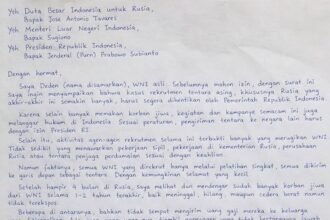 Yth Duta Besar Indonesia untuk Rusia,
Bapak Jose Antonio Tavares
Yth Menteri Luar Negeri Indonesia,
Bapak Sugiono
Yth Presiden Republik Indonesia,
Bapak Jenderal (Purn) Prabowo Subianto
Dengan hormat,
Saya Deden (nama disamarkan), WNI asli. Sebelumnya mohon izin, dengan surat ini
Saya ingin menyampaikan bahwa kasus rekrutmen tentara asing, khususnya Rusia yang
akhir-akhir ini semakin banyak, harus segera dihentikan oleh Pemerintah Republik Indonesia
Karena selain banyak memakan korban jiwa, kegiatan dan kampanye semacam ini juga
melanggar hukum di Indonesia. Sesuai peraturan, pengiriman tentara ke negara lain harus
dengan izin Presiden RI.
Selain itu, aktivitas agen-agen rekrutmen selama ini terbukti banyak yang merugikan WNI
Tidak sedikit yang menawarkan pekerjaan sipil, pekerjaan di kementerian Rusia, perusahaan
Rusia atau tentara penjaga perdamaian sesuai dengan keahlian.
Namun faktanya, semua WNI yang direkrut hanya melalui pelatihan singkat, semua dikirim
ke garis depan sebagai tentara. Dengan kemungkinan selamat yang kecil.
Setelah hampir 4 bulan di Rusia, saya melihat dan mendengar sudah banyak korban jiwa
dari WNI selama 1-2 tahun terakhir, baik meninggal, hilang, maupun cedera berat namun
tidak terekspos.
Beberapa di antaranya, bahkan tidak sempat mengirim uang yang mereka ke keluarga